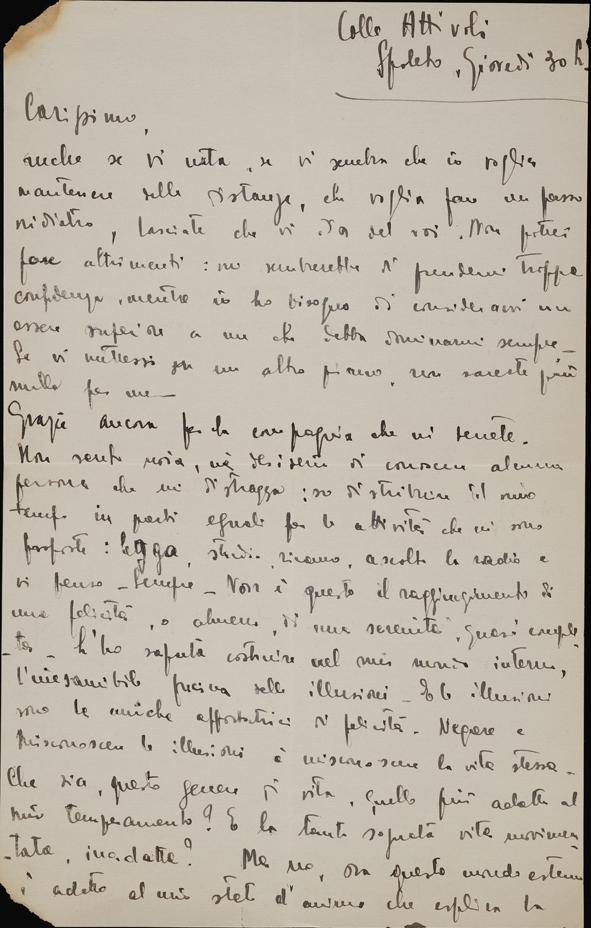 Colle Attivoli
Spoleto, Giovedì 30 h.
Carissimo,
anche se vi irrita, se vi sembra che io voglia
mantenere delle distanze, che voglia fare un passo
indietro, lasciate che vi dia del voi. Non potrei
fare altrimenti: mi sembrerebbe di prendermi troppa
confidenza, mentre io ho bisogno di considerarvi un
essere superiore a me che debba dominarmi sempre_
Se vi mettessi su un altro piano, non sareste più
nulla per me_
Grazie ancora per la compagnia che mi tenete.
Non sento noia, nè desiderio di conoscere alcuna
persona che mi distragga: so distribuire il mio
tempo in parti eguali per le attività che mi sono
proposte: leggo, studio, ricamo, ascolto la radio e
vi penso_ Sempre_ Non è questo il raggiungimento di
una felicità, o almeno, di una serenità, quasi comple-
-ta_ L'ho saputa costruire nel mio mondo interno,
l'inesauribile fucina delle illusioni_ E le illusioni
sono le uniche apportatrici di felicità. Negare e
misconoscere le illusioni è misconoscere la vita stessa_
Che sia, questo genere di vita, quello più adatto al
mio temperamento? E la tanto sognata vita movimen-
-tata, inadatta? Ma no, ora questo mondo esterno
è adatto al mio stato d'animo che esplica la